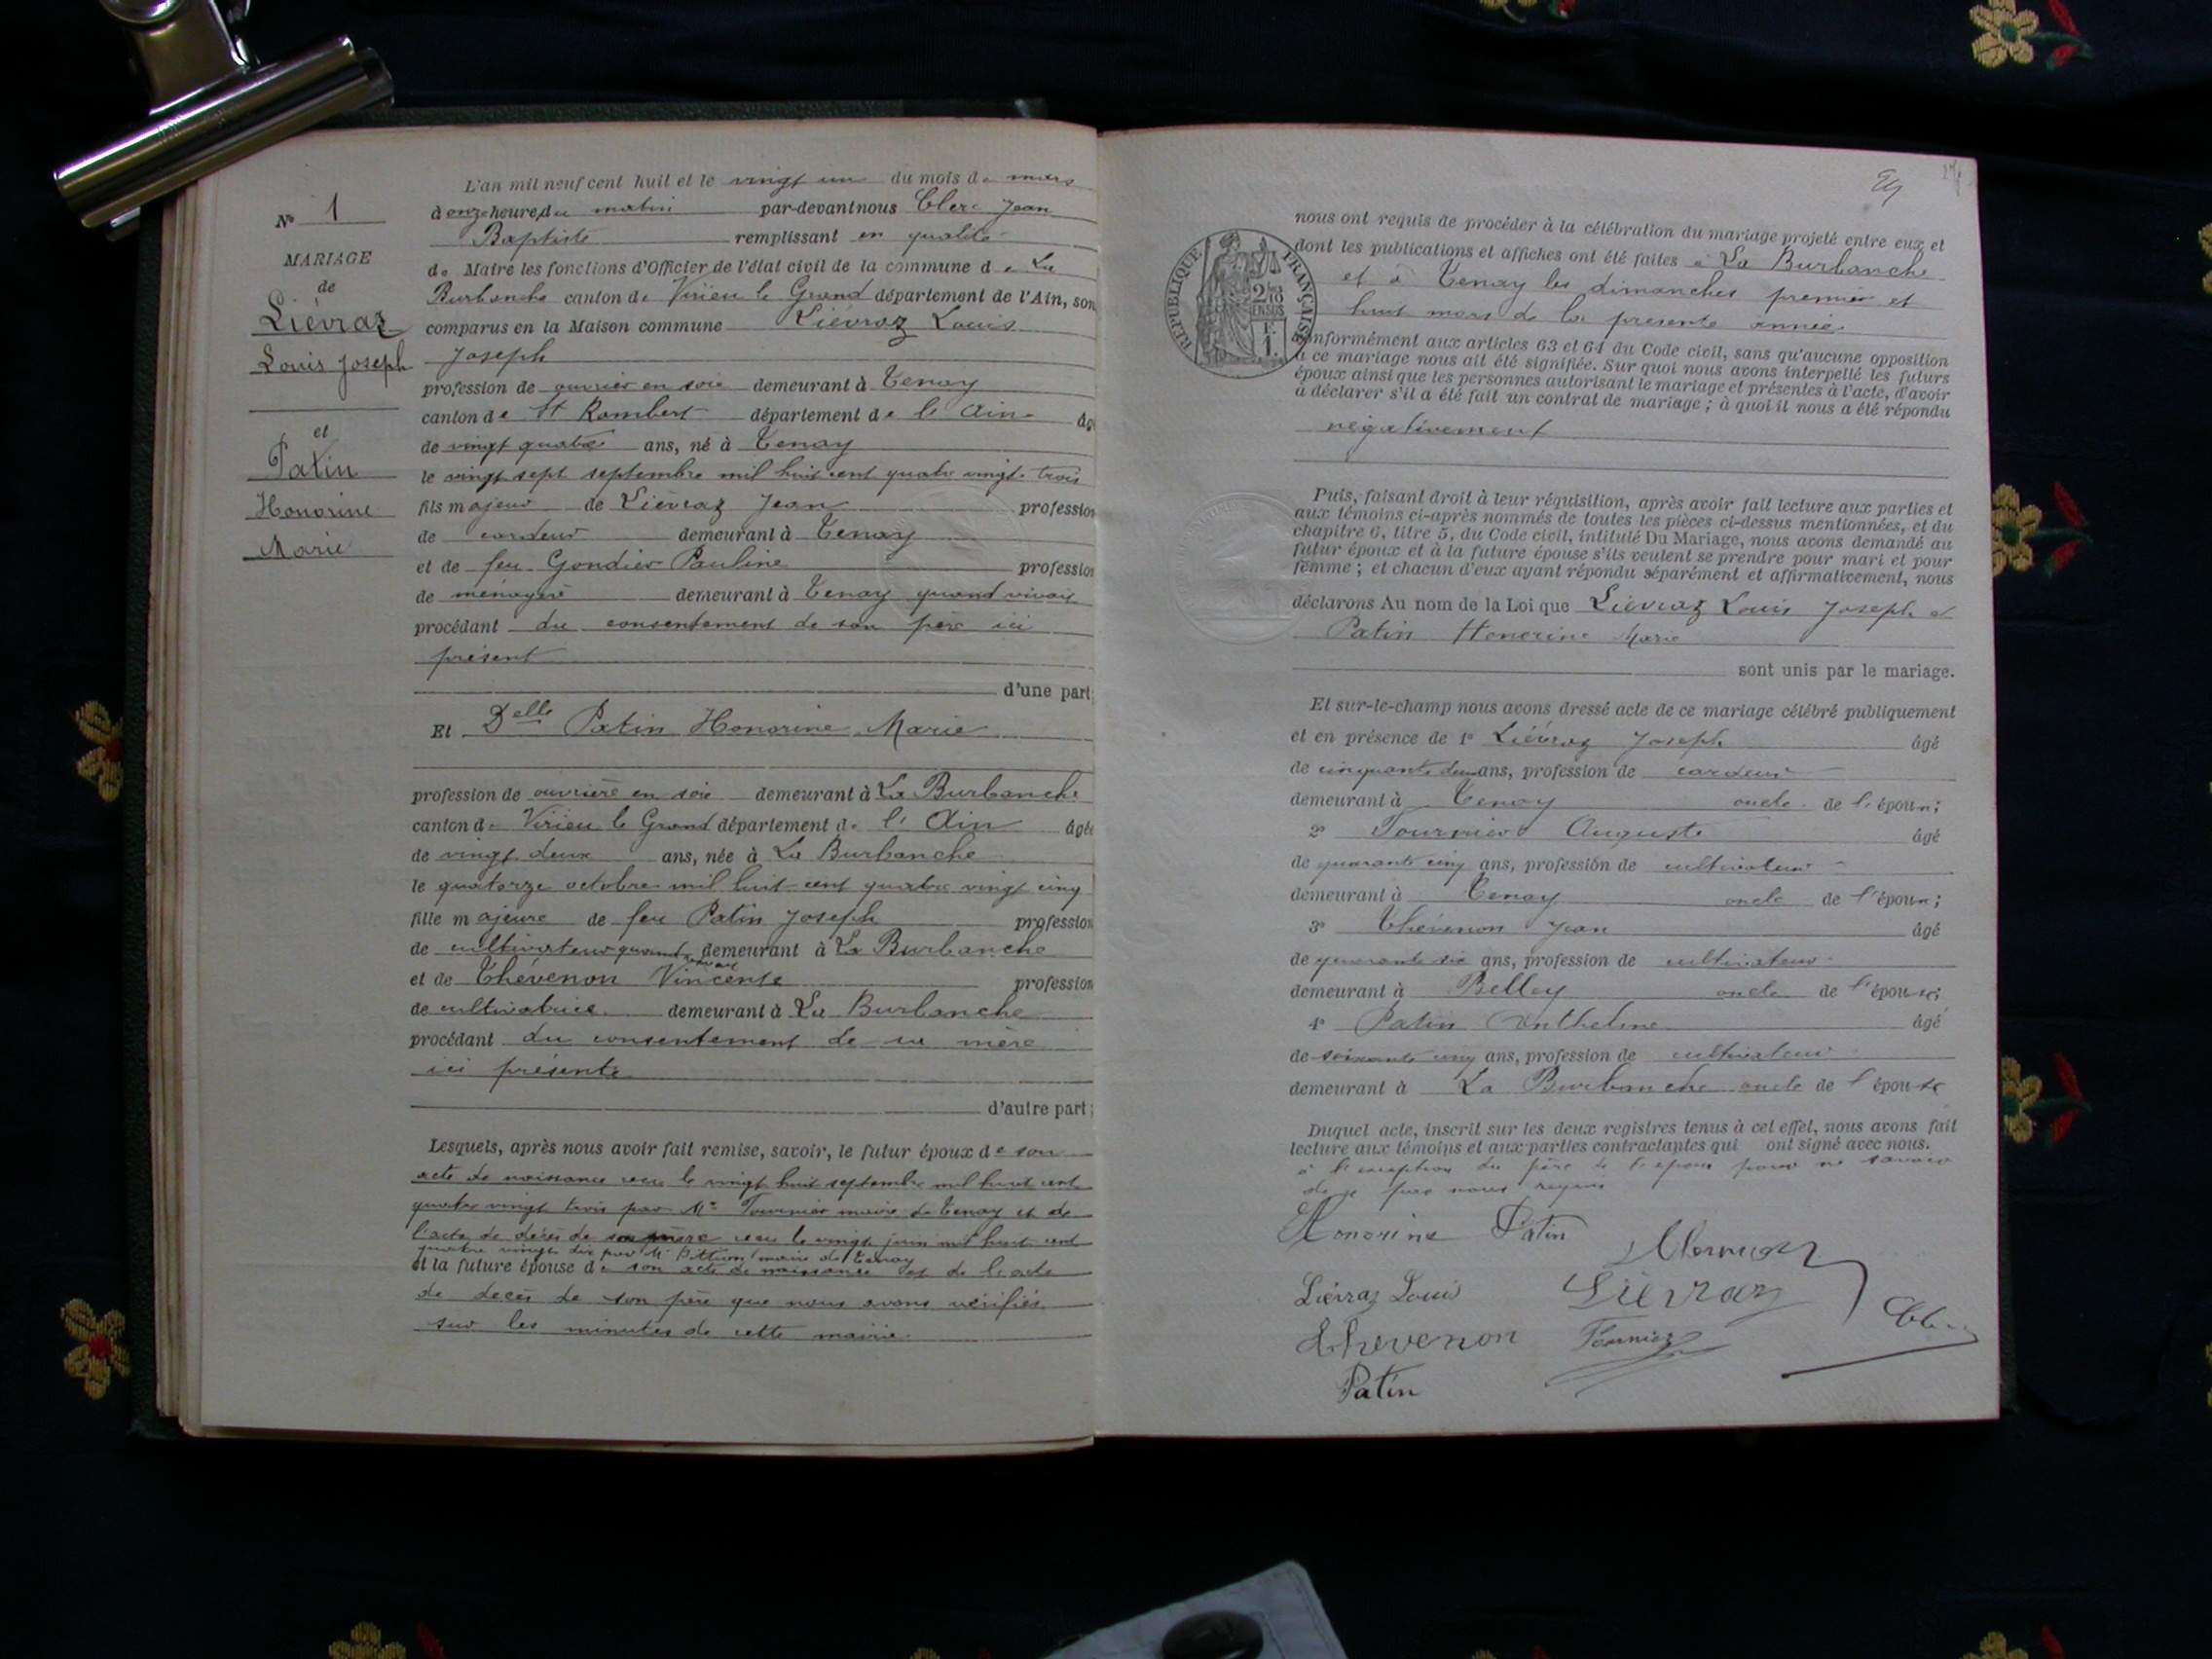 N° 1
MARIAGE
de
Liévraz
Louis Joseph
et
Patin
Honorine
Marie
L'an mil neuf cent huit et le vingt un du mois de mars
à onze heures du matin par-devant nous Clerc Jean
Baptiste remplissant en qualité
de Maire les fonctions d'Officier de l'état civil de la commune de La
Burbanche canton de Virieu le Grand département de l'Ain, son
comparus en la Maison commune Liévraz Louis
Joseph
profession de ouvrier en soie demeurant à Tenay
canton de St Rambert département de l'Ain âgé
de vingt quatre ans, né à Tenay
le vingt sept septembre mil huit cent quatre vingt trois
fils majeur de Liévraz Jean profession
de cardeur demeurant à Tenay
et de feu Gondier Pauline profession
de ménagère demeurant à Tenay quand vivait
procédant du consentement de son père ici
présent
d'une part;
Et Delle Patin Honorine Marie
profession de ouvrière en soie demeurant à La Burbanche
canton de Virieu le Grand département de l'Ain âgée
de vingt deux ans, née à La Burbanche
le quatorze octobre mil huit cent quatre vingt cinq
fille majeure de feu Patin Joseph profession
de cultivateur quand vivait demeurant à La Burbanche
et de Thévenon Vincente profession
de cultivatrice demeurant à La Burbanche
procédant du consentement de sa mère
ici présente
d'autre part;
Lesquels, après nous avoir fait remise, savoir, le futur époux de son
acte de naissance reçu le vingt huit septembre mil huit cent
quatre vingt trois par Mr Tournier maire de Tenay et de
l'acte de décès de sa mère reçu le vingt juin mil huit cent
quatre vingt dix par Mr maire de Tenay
et la future épouse de son acte de naissance et de l'acte
de décès de son père que nous avons vérifiés
sur les minutes de cette mairie.
RÉPUBLIQUE FRANÇAISE
2/10
EN SUS
F.
1.
nous ont requis de procéder à la célébration du mariage projeté entre eux et
dont les publications et affiches ont été faites à La Burbanche
et à Tenay les dimanches premier et
huit mars de la présente année
conformément aux articles 63 et 64 du Code civil, sans qu'aucune opposition
à ce mariage nous ait été signifiée. Sur quoi nous avons interpellé les futurs
époux ainsi que les personnes autorisant le mariage et présentes à l'acte, d'avoir
à déclarer s'il a été fait un contrat de mariage; à quoi il nous a été répondu
négativement
Puis, faisant droit à leur réquisition, après avoir fait lecture aux parties et
aux témoins ci-après nommés de toutes les pièces ci-dessus mentionnées, et du
chapitre 6, titre 5, du Code civil, intitulé Du Mariage, nous avons demandé au
futur époux et à la future épouse s'ils veulent se prendre pour mari et pour
femme; et chacun d'eux ayant répondu séparément et affirmativement, nous
déclarons Au nom de la Loi que Liévraz Louis Joseph et
Patin Honorine Marie
sont unis par le mariage.
Et sur-le-champ nous avons dressé acte de ce mariage célébré publiquement
et en présence de 1° Liévraz Joseph âgé
de cinquante deux ans, profession de cardeur
demeurant à Tenay oncle de l'époux;
2° Tournier Auguste âgé
de quarante cinq ans, profession de cultivateur
demeurant à Tenay oncle de l'époux;
3° Thévenon Jean âgé
de quarante six ans, profession de cultivateur
demeurant à Belley oncle de l'épouse;
4° Patin Anthelme âgé
de soixante cinq ans, profession de cultivateur
demeurant à La Burbanche oncle de l'épouse
Duquel acte, inscrit sur les deux registres tenus à cet effet, nous avons fait
lecture aux témoins et aux parties contractantes qui ont signé avec nous.
à l'exception du père de l'époux pour ne savoir
de ce par nous requis
Honorine Patin
Liévraz Louis Liévraz
Thevenon Tournier
Patin